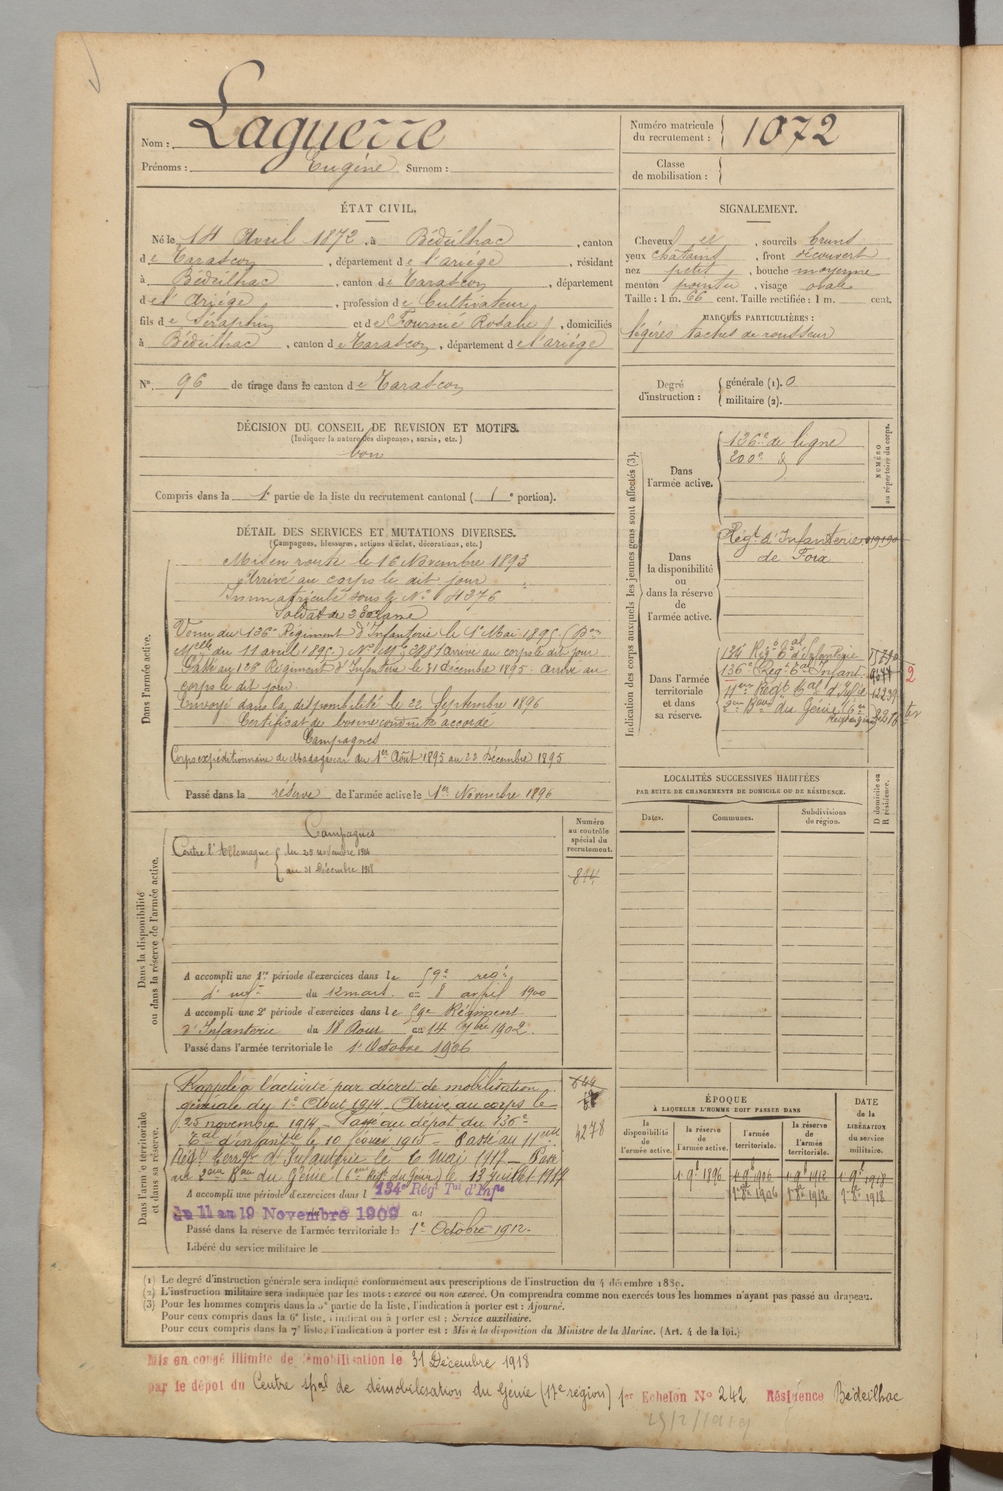 Nom : Laguerre
Prénoms : Eugène Surnom :
Numéro matricule du recrutement : 1072
Classe de mobilisation :
ÉTAT CIVIL.
Né le 14 Avril 1872, à Bédeilhac, canton
de Tarascon, département de l'ariège, résidant
à Bédeilhac, canton de Tarascon, département
de l'Ariège, profession de Cultivateur,
fils de Séraphin et de Fournié Rosalie, domiciliés
à Bédeilhac, canton de Tarascon, département de l'ariège
N° 96 de tirage dans le canton de Tarascon
SIGNALEMENT.
Cheveux et, sourcils bruns
yeux chatains, front découvert
nez petit, bouche moyenne
menton pointu, visage ovale
Taille : 1 m. 66 cent. Taille rectifiée : 1 m. cent.
MARQUES PARTICULIÈRES :
légères taches de rousseur
Degré d'instruction : générale (1). 0
militaire (2).
DÉCISION DU CONSEIL DE REVISION ET MOTIFS.
(Indiquer la nature des dispenses, sursis, etc.)
bon
Compris dans la 1e partie de la liste du recrutement cantonal (1e portion).
DÉTAIL DES SERVICES ET MUTATIONS DIVERSES.
(Campagnes, blessures, actions d'éclat, décorations, etc.)
Dans l'armée active.
Mis en route le 16 Novembre 1893
Arrivé au corps le dit jour
Immatriculé sous le N° 4376
Soldat de 2e classe
Venu du 136e Régiment d'Infanterie le 1er Mai 1895
du 11 avril 1895) arrivé au corps le dit jour
Passé au 126 Régiment d'Infanterie le 21 décembre 1895 arrivé au
corps le dit jour
Envoyé dans la disponibilité le 22 Septembre 1896
Certificat de bonne conduite accordé
Campagnes
Corps expéditionnaire de Madagascar du 1er Août 1895 au 22 Décembre 1895
Passé dans la réserve de l'armée active le 1er Novembre 1896
Indication des corps auxquels les jeunes gens sont affectés (3).
NUMÉRO au répertoire du corps.
Dans l'armée active.
136e de ligne
200e d
Dans la disponibilité ou dans la réserve de l'armée active.
Régt d'Infanterie
de Foix
Dans l'armée territoriale et dans sa réserve.
134 Régt Tal d'Infanterie
136e Régt Tal Infant.
11ème Régt Tal d'Infie 12239
2ème Bon du Génie (6e
2
ter
LOCALITÉS SUCCESSIVES HABITÉES
PAR SUITE DE CHANGEMENTS DE DOMICILE OU DE RÉSIDENCE.
Dates. Communes. Subdivisions de région. D domicile ou R résidence.
Dans la disponibilité ou dans la réserve de l'armée active.
Numéro au contrôle spécial du recrutement.
814
Campagnes
Contre l'Allemagne du 25 novembre 1914
au 31 Décembre 1918
A accompli une 1re période d'exercices dans le 59e régt
d'infie du 12 mars au 8 avril 1900
A accompli une 2e période d'exercices dans le 59e Régiment
d'Infanterie du 18 Aout au 14 7bre 1902.
Passé dans l'armée territoriale le 1er Octobre 1906
Dans l'armée territoriale et dans sa réserve.
Rappelé à l'activité par décret de mobilisation
générale du 1er Aout 1914. Arrivé au corps le
25 novembre 1914. Passé au dépot du 136e
Tal d'infanterie le 10 février 1915 – Passé au 11ème
Régt Territ d'Infanterie le 10 Mai 1917 – Passé
au 2ème Bon du Génie (6ème Régt du Génie) le 13 Juillet 1917
4278
A accompli une période d'exercices dans l 134e Régt Tal d'Infie
du 11 au 19 Novembre 1909 au
Passé dans la réserve de l'armée territoriale le 1er Octobre 1912.
Libéré du service militaire le
ÉPOQUE
À LAQUELLE L'HOMME DOIT PASSER DANS
la disponibilité de l'armée active. la réserve de l'armée active. l'armée territoriale. la réserve de l'armée territoriale.
DATE de la LIBÉRATION du service militaire.
1 9b 1896 1 9b 1906 1 9b 1912 1 9b 1918
1er 8b 1906 1er 8b 1912 1er 8b 1918
(1) Le degré d'instruction générale sera indiqué conformément aux prescriptions de l'instruction du 4 décembre 1889.
(2) L'instruction militaire sera indiquée par les mots : exercé ou non exercé. On comprendra comme non exercés tous les hommes n'ayant pas passé au drapeau.
(3) Pour les hommes compris dans la 5e partie de la liste, l'indication à porter est : Ajourné.
Pour ceux compris dans la 6e liste, l'indication à porter est : Service auxiliaire.
Pour ceux compris dans la 7e liste, l'indication à porter est : Mis à la disposition du Ministre de la Marine. (Art. 4 de la loi.)
Mis en congé illimité de démobilisation le 31 Décembre 1918
par le dépot du Centre spal de démobilisation du Génie (17e région) 1er Echelon N° 242 Résidence Bédeilhac